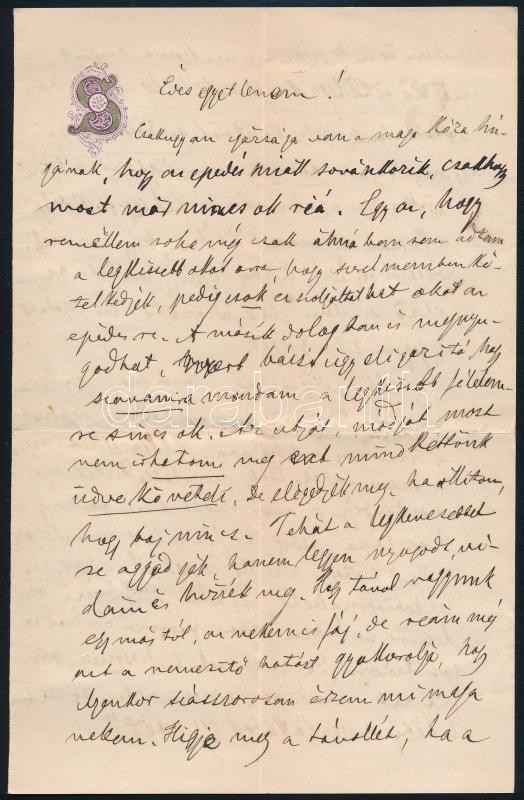 Édes egyetlenem!
Csakugyan igazsága van a maga Róza hú-
gának, hogy az epedés miatt soványkozik, csakhogy
most már nincs ok reá. Egy az, hogy
remélem soha még csak álmában sem adtam
a legkissebb okot arra, hogy szerelmemben ké-
telkedjék, pedig csak ez szolgáltathat okot az
epedésre. A másik dologban is megnyu-
godhat, bácsi úgy eligazitá, hogy
szavamra mondom a legkisebb félelem-
re sincs ok. Az utját, módját most
nem irhatom meg, ezt mind kettőnk
üdve követeli, de elégedjék meg, ha állitom,
hogy baj nincs. Tehát a legkevesebbet
se aggódjék, hanem legyen nyugodt, vi-
dám és hízzék meg. Hogy távol vagyunk
egymástól, az nekem is fáj, de reám még
ezt a nemesítő hatást gyakorolja, hogy
ilyenkor százszorosan érzem mi maga
nekem. Higje meg a távollét, ha a
darabanth